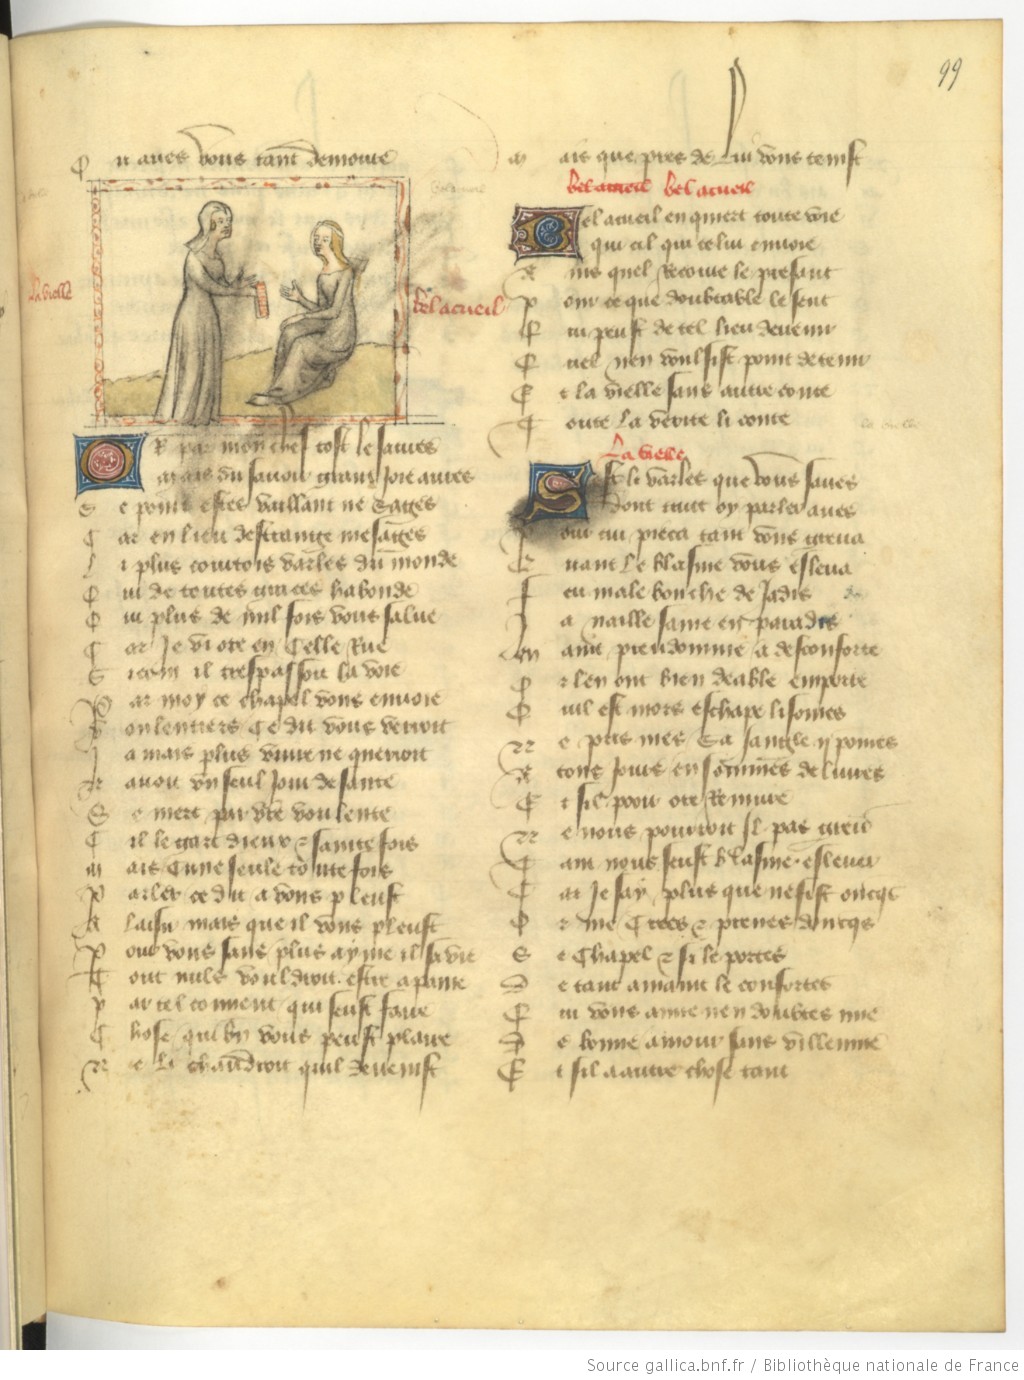 99
Ou aves vous tant demoure
La vielle
bel acueil
Or par mon chef tost le saures
du savoir grant joie aures
e point estes vaillant ne sages
Car en lieu destrange mesages
Li plus courtois varles du monde
Qui de toutes graces habonde
Qui plus de mil fois vous salue
Car Je vi ore en celle Rue
Sicom il trespassoit la voie
Par moy ce chapel vous envoie
Voulentiers ce dit vous verroit
Ja mais plus vivre ne querroit
avoir un seul Jour de sante
Se niert par vre voulente
Cil le gart dieux et sainte fois
mais cune seule toute fois
Parler ce dit a vous peust
A laisir mais que il vous pleust
Pour vous sans plus ayme il sa vie
Tout nuls vouldroit estre a pavie
Par tel convent qui seust faire
Chose qui by vous peust plaire
Ne li chaudroit quil devenist
mais que pres de lui vous tenist
bel acueil bel acueil
Bel acueil enquiert toute voie
qui cil qui celui envoie
Ains quel Recoive le present
Pour ce que doubtable le sent
Qui peust de tel lieu devenir
Quel nen voulsist point detenir
Et la vielle sans autre conte
Toute la verite li conte
La vielle
Cest li varles que vous saves
Dont tant oy parler aves
Pour cui pieca tant vous greva
Quant le blasme vous esleva
feu male bouche de Jadis
Ja naille same en paradis
Maint preudomme a desconforte
Or len ont bien deable emporte
Quil est mors eschape li somes
Ne pris mes sa Jangle ij pomes
A tous Jours en sommes delivres
Et sil pooit ore Revivre
Ne nous pourroit Il pas grever
Tant nous seust blasme eslever
Car Je say plus que ne fist oncqs
Or me crees et prenes doncqs
Ce chapel et si le portes
De tant amaint le confortes
Qui vous aime nen doubtes mie
De bonne amour sans villennie
Et sil a autre chose tant
Source gallica.bnf.fr / Bibliothèque nationale de France